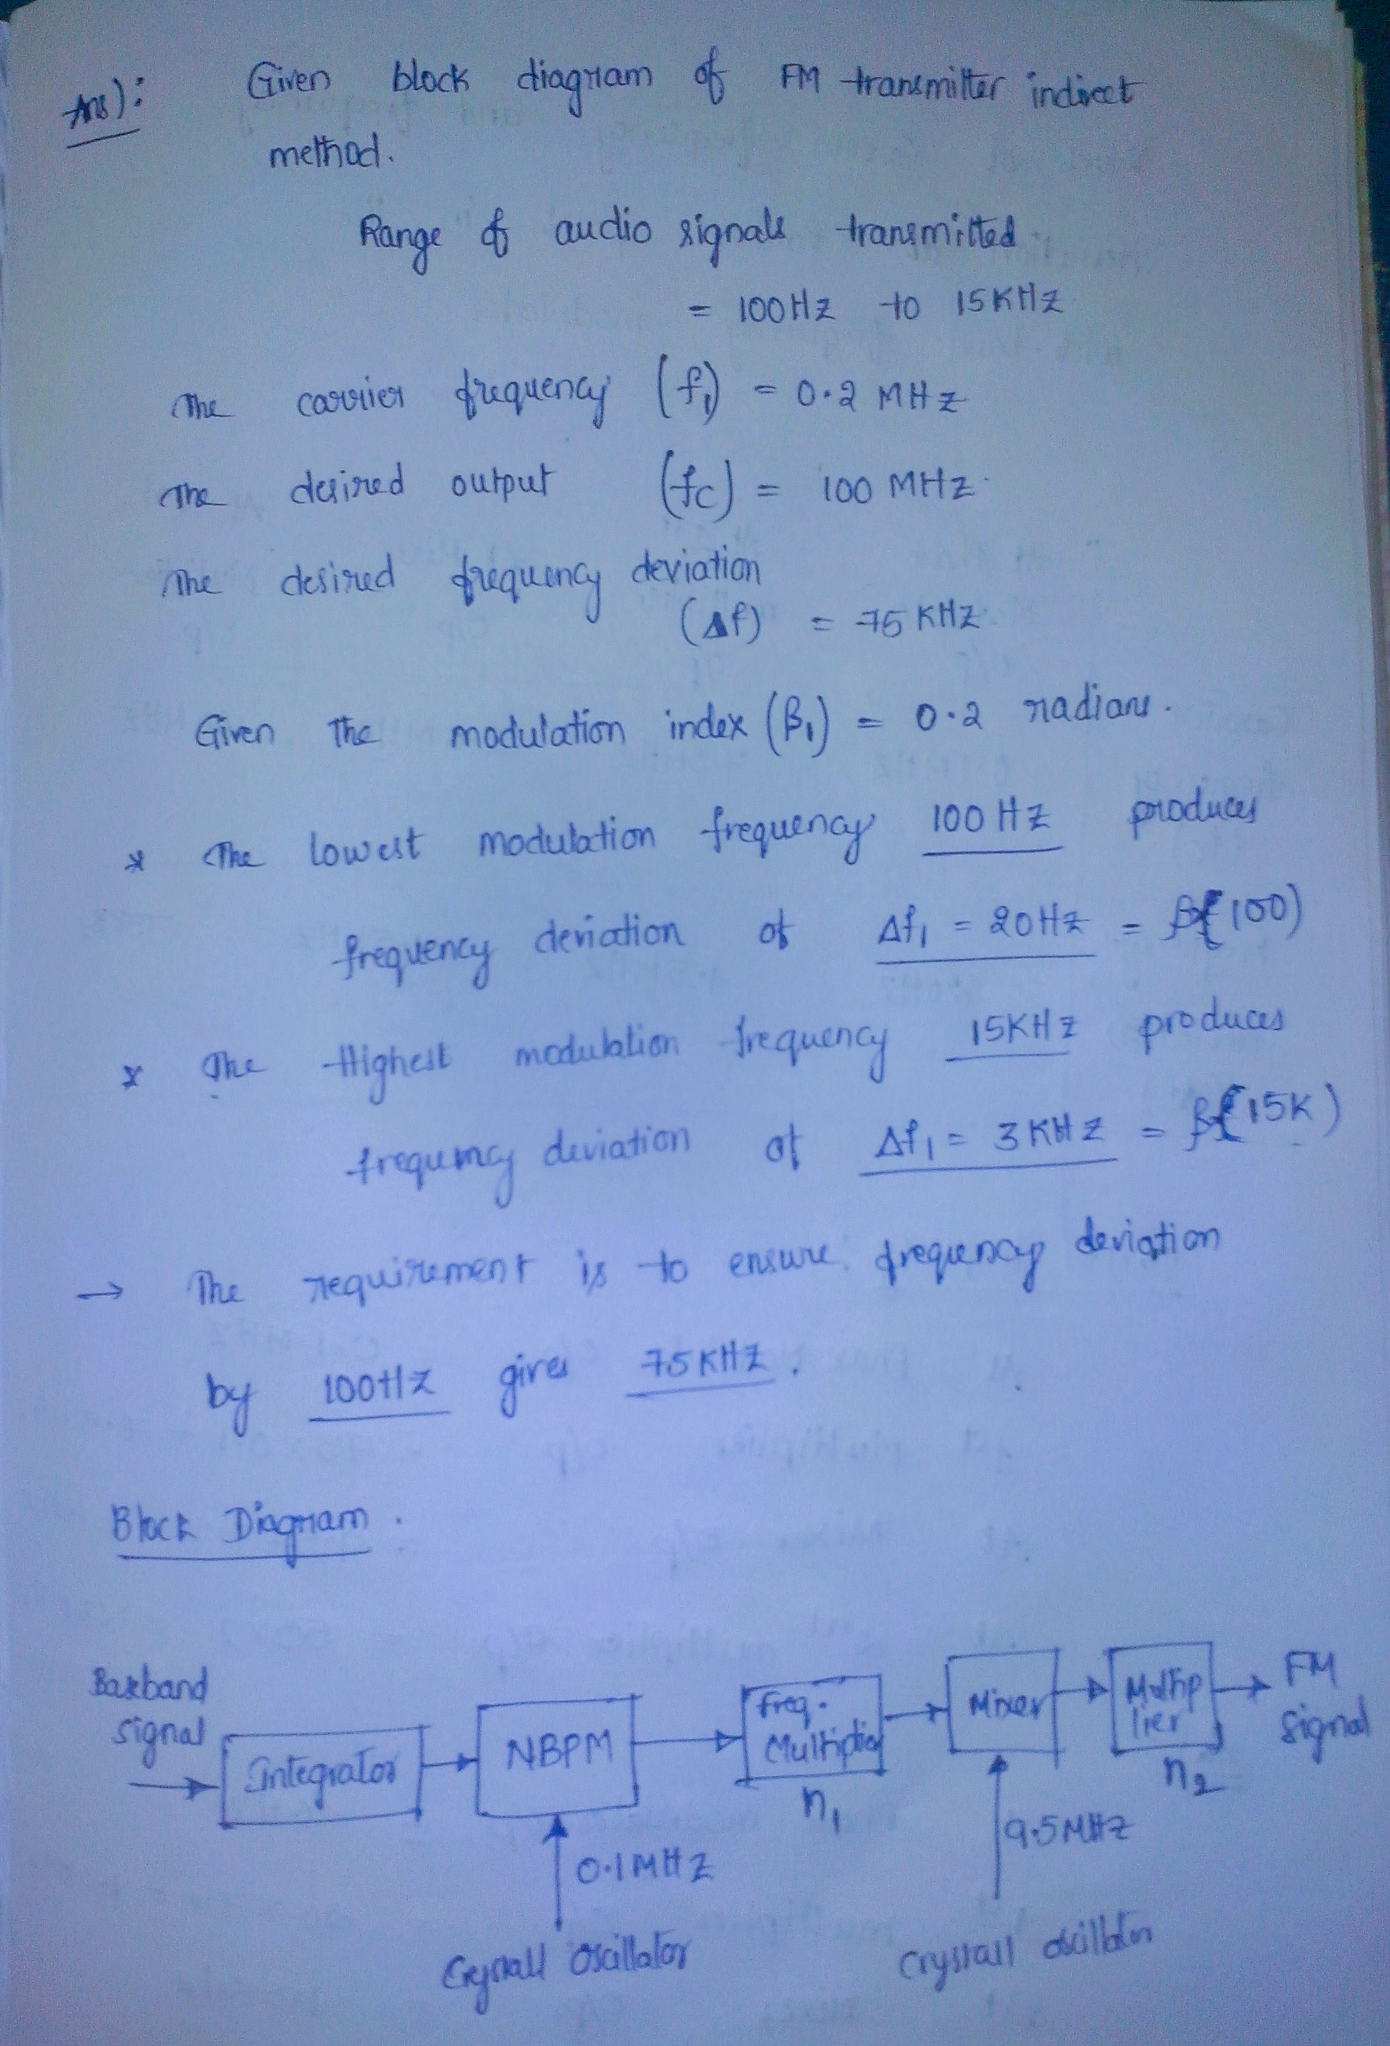 Ans):
Given block diagram of FM transmitter indirect
method.
Range of audio signals transmitted
= 100Hz to 15KHz
The carrier frequency (f₁) = 0.2 MHz
The desired output (fc) = 100 MHz.
The desired frequency deviation
(Δf) = 75 KHz
Given The modulation index (β₁) = 0.2 radians.
* The lowest modulation frequency 100 Hz produces
frequency deviation of Δf₁ = 20Hz = β(100)
* The Highest modulation frequency 15KHz produces
frequency deviation of Δf₁ = 3 KHz = β(15K)
→ The requirement is to ensure frequency deviation
by 100Hz gives 75KHz.
Block Diagram.
Baseband
signal
Integrator
NBPM
freq.
Multiplier
n₁
Mixer
Multip
lier
n₂
FM
signal
0.1MHz
9.5MHz
Crystall Oscillator
Crystall oscillator